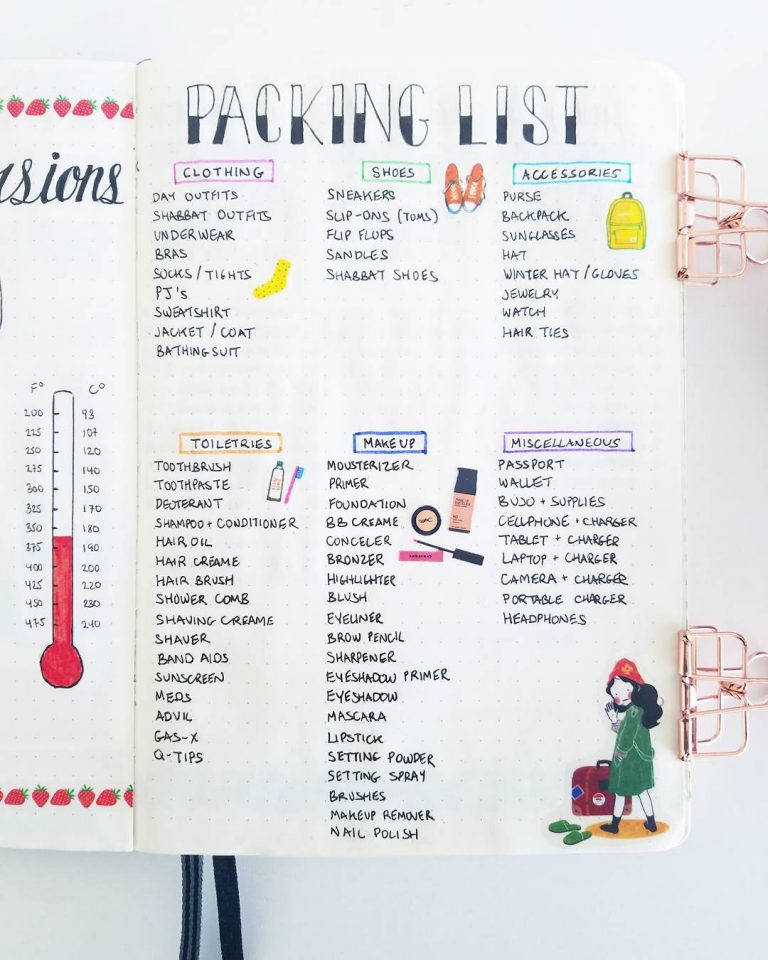 nsions
F° C°
200 93
225 107
250 120
275 140
300 150
325 170
350 180
375 190
400 200
425 220
450 230
475 240
PACKING LIST
CLOTHING
DAY OUTFITS
SHABBAT OUTFITS
UNDERWEAR
BRAS
SOCKS / TIGHTS
PJ's
SWEATSHIRT
JACKET / COAT
BATHINGSUIT
SHOES
SNEAKERS
SLIP-ONS (TOMS)
FLIP FLOPS
SANDLES
SHABBAT SHOES
ACCESSORIES
PURSE
BACKPACK
SUNGLASSES
HAT
WINTER HAT / GLOVES
JEWELRY
WATCH
HAIR TIES
TOILETRIES
TOOTHBRUSH
TOOTHPASTE
DEOTERANT
SHAMPOO + CONDITIONER
HAIR OIL
HAIR CREAME
HAIR BRUSH
SHOWER COMB
SHAVING CREAME
SHAVER
BAND AIDS
SUNSCREEN
MEDS
ADVIL
GAS-X
Q-TIPS
MAKEUP
MOUSTERIZER
PRIMER
FOUNDATION
BB CREAME
CONCELER
BRONZER
HIGHLIGHTER
BLUSH
EYELINER
BROW PENCIL
SHARPENER
EYESHADOW PRIMER
EYESHADOW
MASCARA
LIPSTICK
SETTING POWDER
SETTING SPRAY
BRUSHES
MAKEUP REMOVER
NAIL POLISH
MISCELLANEOUS
PASSPORT
WALLET
BUJO + SUPPLIES
CELLPHONE + CHARGER
TABLET + CHARGER
LAPTOP + CHARGER
CAMERA + CHARGER
PORTABLE CHARGER
HEADPHONES